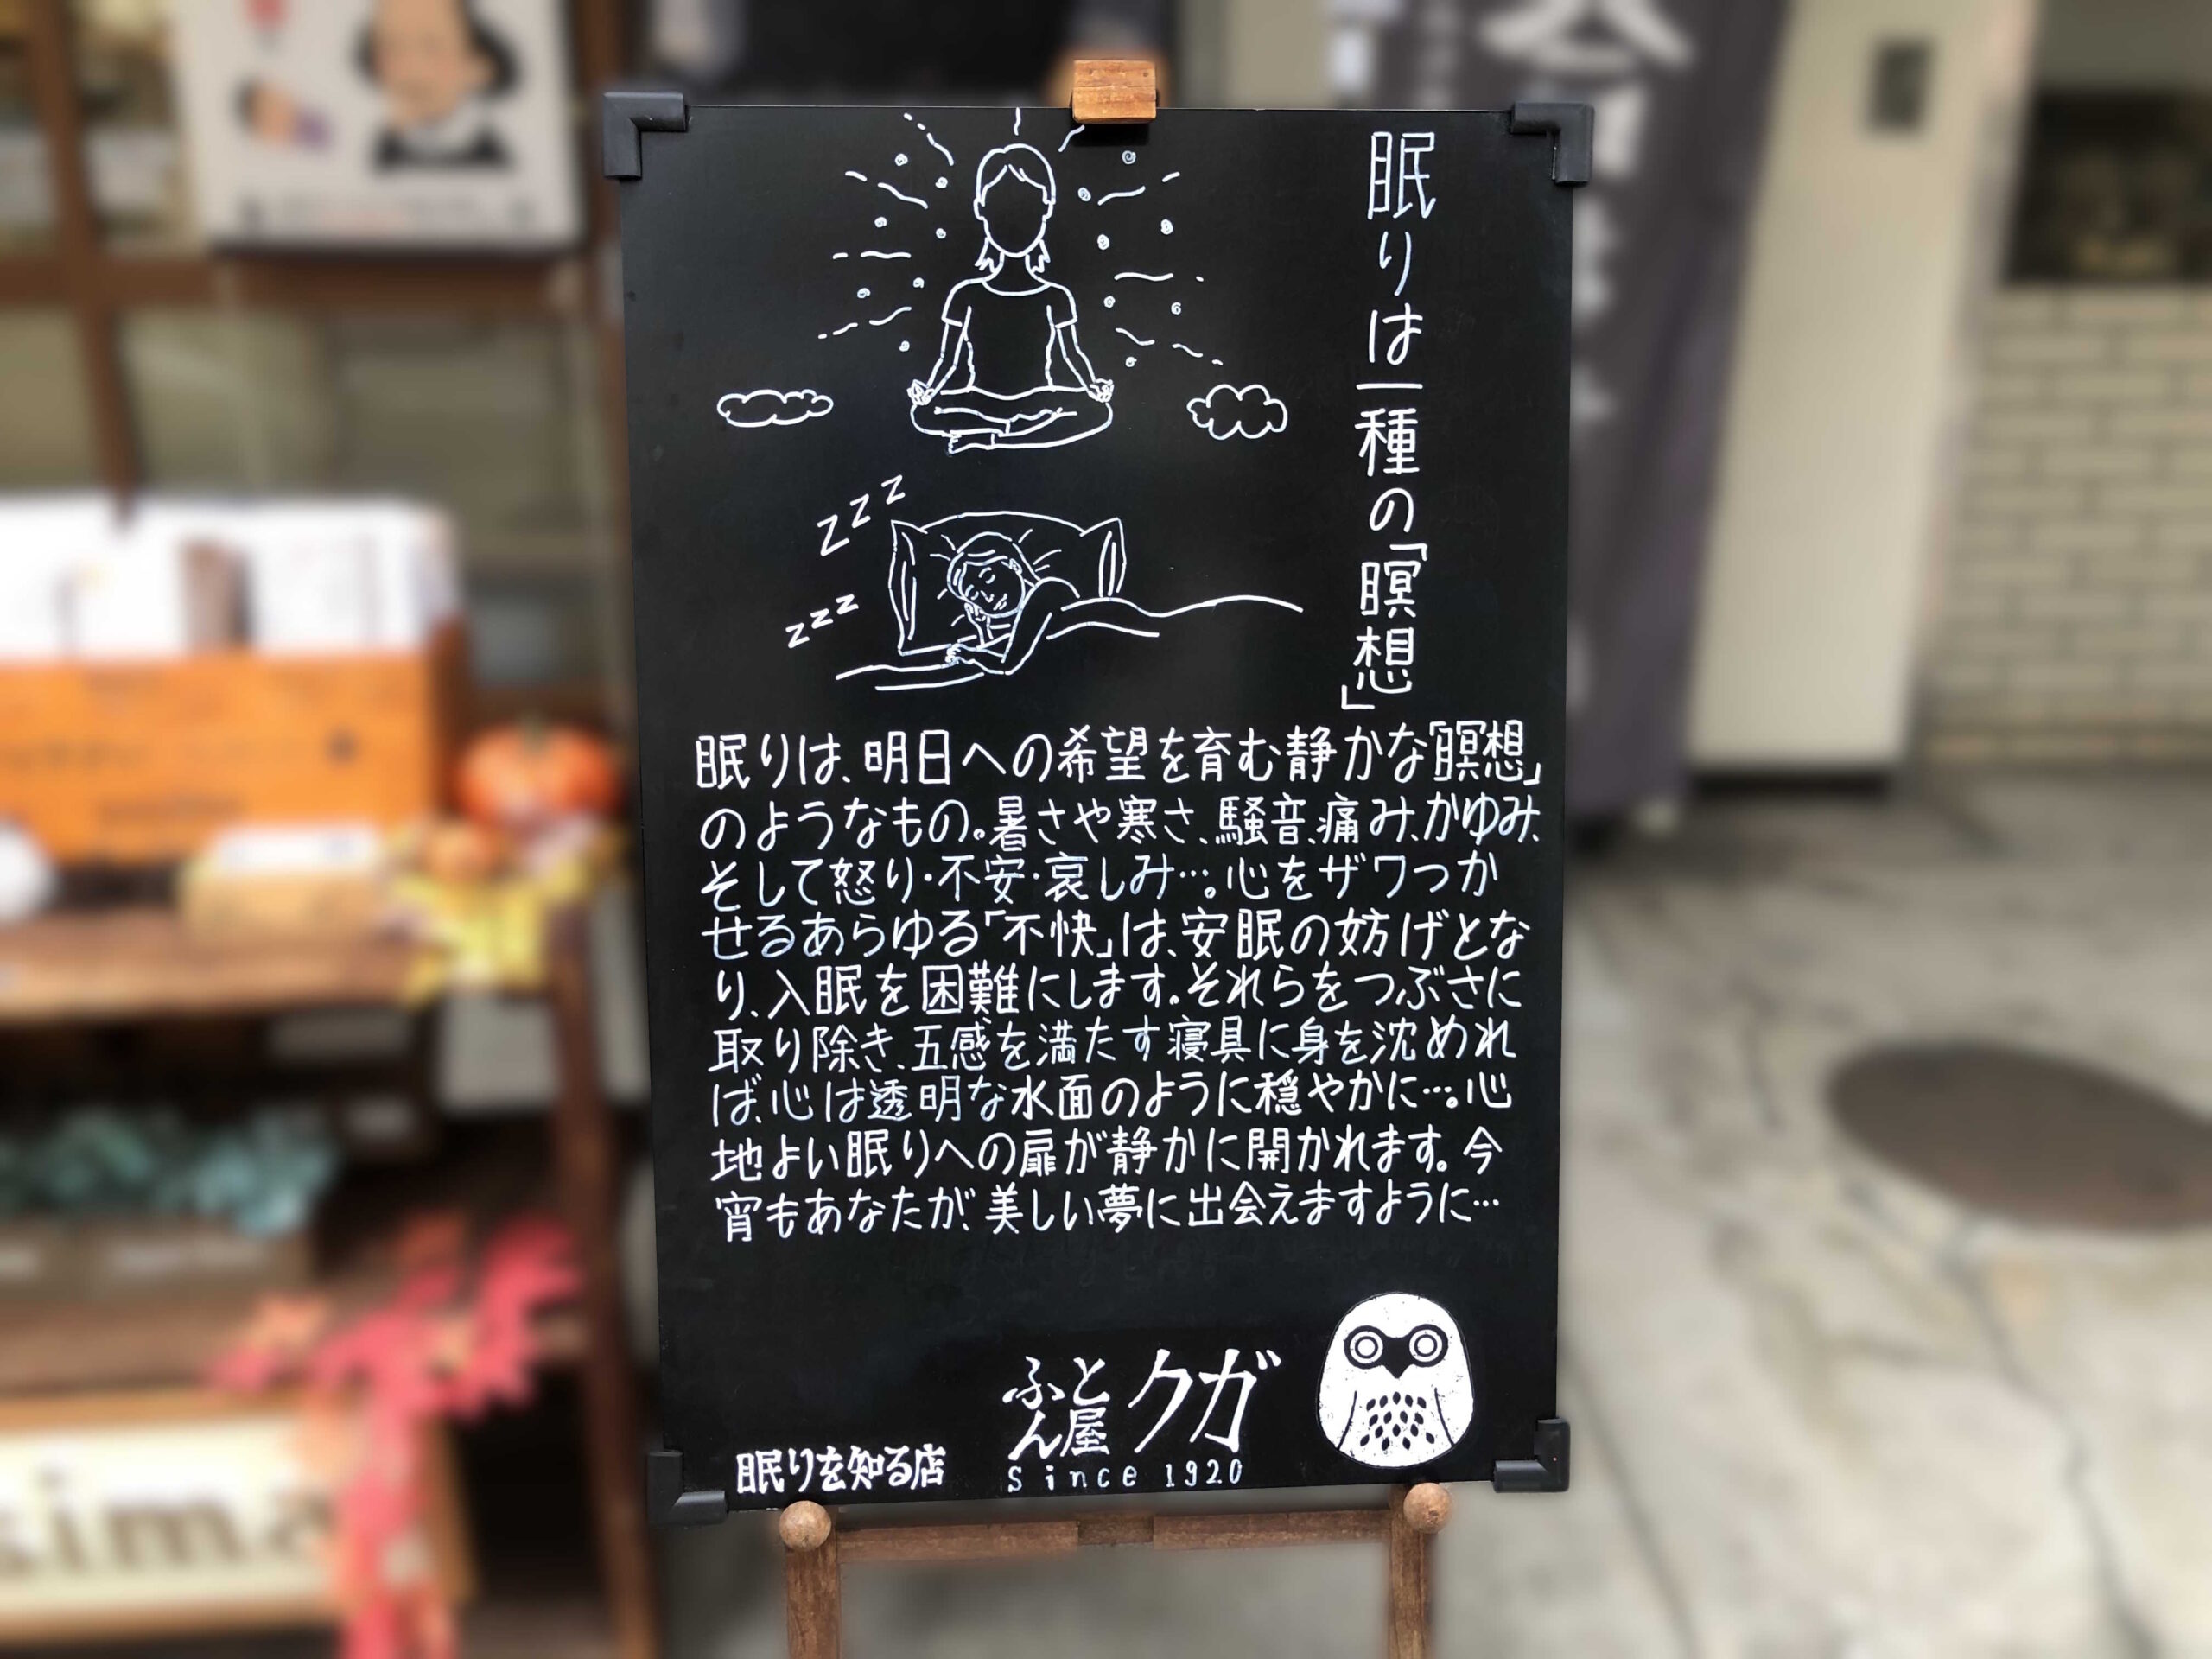 眠りは一種の「瞑想」
zzz
zzz
眠りは、明日への希望を育む静かな「瞑想」
のようなもの。暑さや寒さ、騒音、痛み、かゆみ、
そして怒り・不安・哀しみ…。心をザワつか
せるあらゆる「不快」は、安眠の妨げとな
り、入眠を困難にします。それらをつぶさに
取り除き、五感を満たす寝具に身を沈めれ
ば、心は透明な水面のように穏やかに…。心
地よい眠りへの扉が静かに開かれます。今
宵もあなたが、美しい夢に出会えますように…
眠りを知る店
ふとん屋クガ
Since 1920
sima